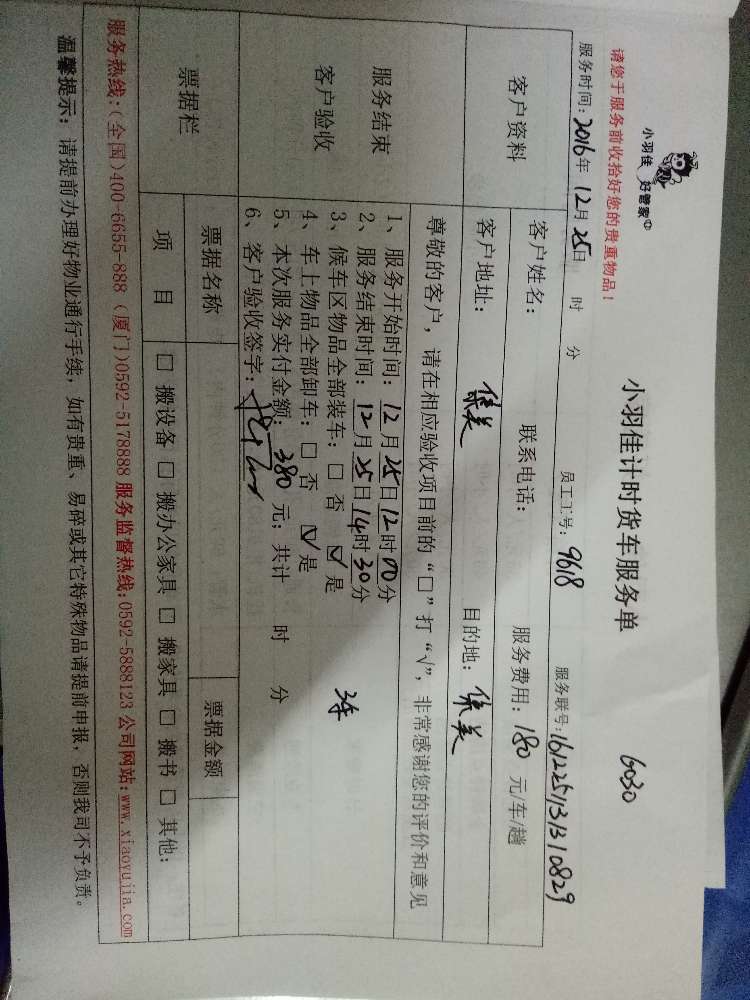 小羽佳 好管家
小羽佳计时货车服务单
6030
请您于服务前收拾好您的贵重物品！
服务时间：2016年12月25日 时 分 员工工号：9618 服务联号：161225131310829
客户资料
客户姓名： 联系电话： 服务费用：180元/车/趟
客户地址：集美 目的地：集美
服务结束
客户验收
尊敬的客户，请在相应验收项目前的“□”打“√”，非常感谢您的评价和意见
1、服务开始时间：12月25日12时00分
2、服务结束时间：12月25日14时30分
3、候车区物品全部装车：□ 否 ☑ 是
4、车上物品全部卸车：□ 否 ☑ 是
5、本次服务实付金额：380元；共计 时 分
6、客户验收签字：
票据栏
票据名称 票据金额
项 目 □ 搬设备 □ 搬办公家具 □ 搬家具 □ 搬书 □ 其他：
服务热线：(全国)400-6655-888 (厦门)0592-5178888 服务监督热线：0592-5888123 公司网站：www.xiaoyujia.com
温馨提示：请提前办理好物业通行手续，如有贵重、易碎或其它特殊物品请提前申报，否则我司不予负责。